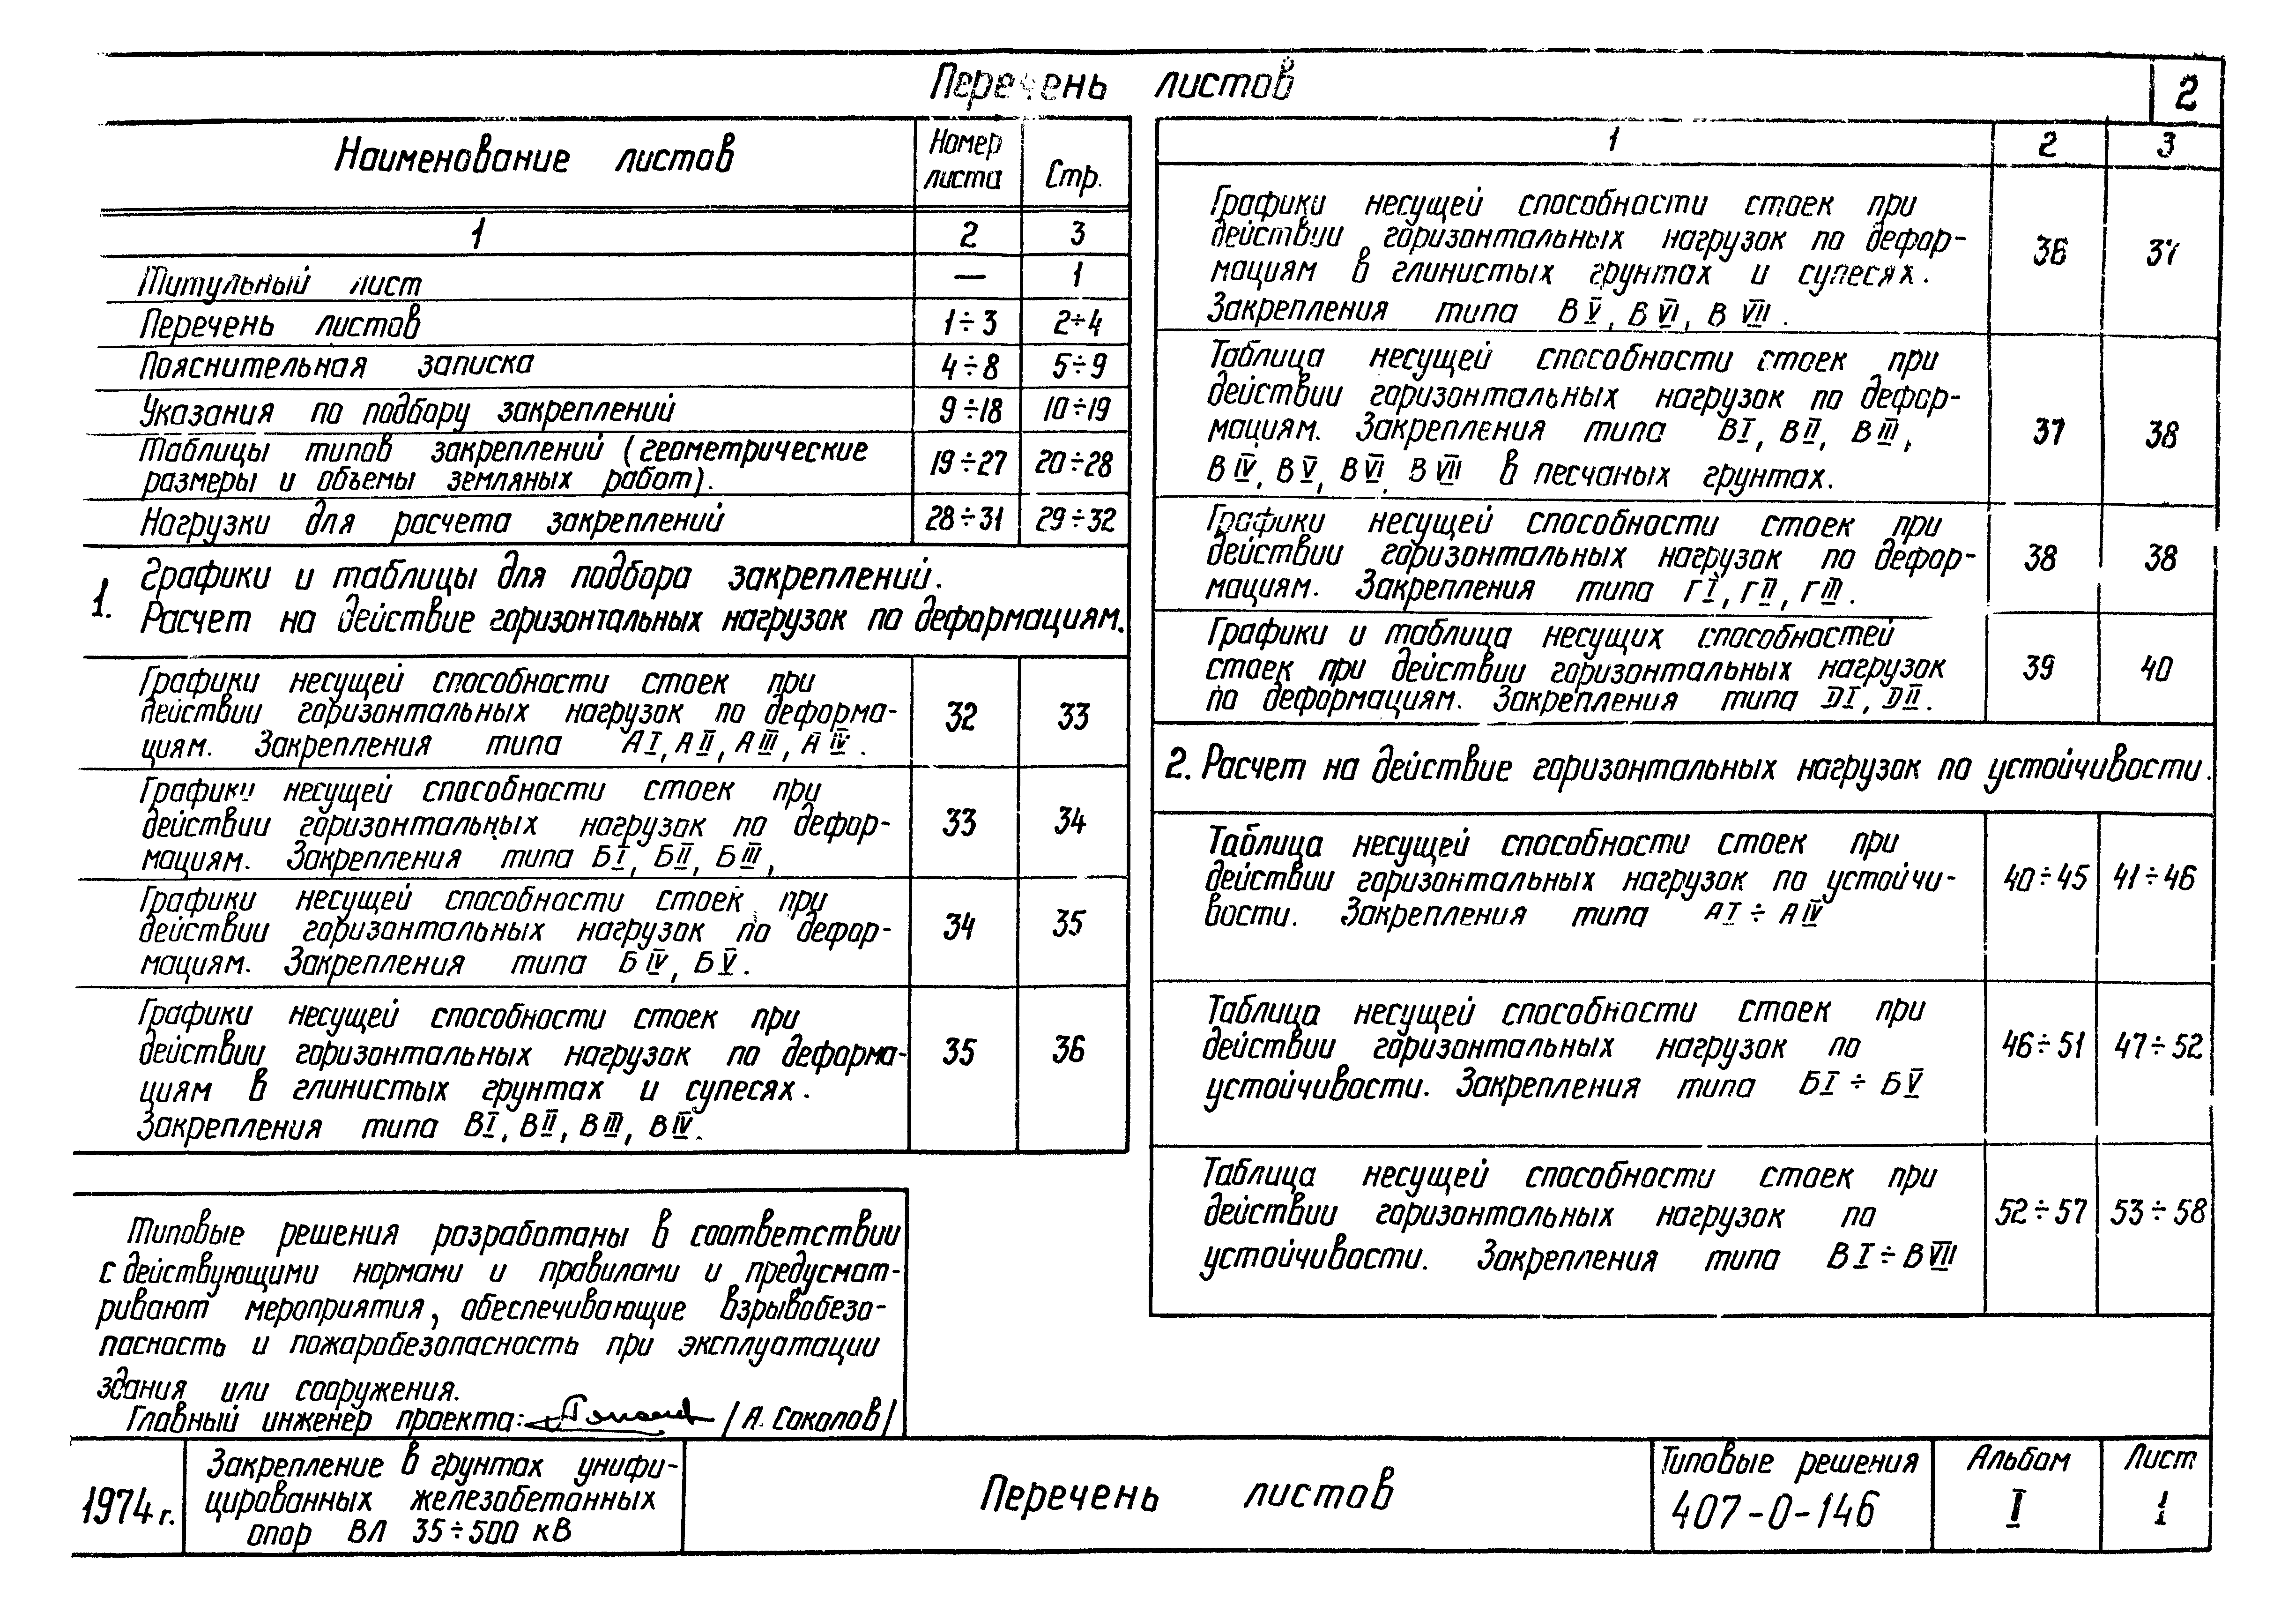 Перечень листов
2
Наименование листов | Номер листа | Стр.
1 | 2 | 3
Титульный лист | — | 1
Перечень листов | 1÷3 | 2÷4
Пояснительная записка | 4÷8 | 5÷9
Указания по подбору закреплений | 9÷18 | 10÷19
Таблицы типов закреплений (геометрические
размеры и объемы земляных работ). | 19÷27 | 20÷28
Нагрузки для расчета закреплений | 28÷31 | 29÷32
1. Графики и таблицы для подбора закреплений.
Расчет на действие горизонтальных нагрузок по деформациям.
Графики несущей способности стоек при
действии горизонтальных нагрузок по деформа-
циям. Закрепления типа АI, АII, АIII, АIV. | 32 | 33
Графики несущей способности стоек при
действии горизонтальных нагрузок по дефор-
мациям. Закрепления типа БI, БII, БIII, | 33 | 34
Графики несущей способности стоек при
действии горизонтальных нагрузок по дефор-
мациям. Закрепления типа БIV, БV. | 34 | 35
Графики несущей способности стоек при
действии горизонтальных нагрузок по деформа-
циям в глинистых грунтах и супесях.
Закрепления типа ВI, ВII, ВIII, ВIV. | 35 | 36
Типовые решения разработаны в соответствии
с действующими нормами и правилами и предусмат-
ривают мероприятия, обеспечивающие взрывобезо-
пасность и пожаробезопасность при эксплуатации
здания или сооружения.
Главный инженер проекта: /А. Соколов/
1 | 2 | 3
Графики несущей способности стоек при
действии горизонтальных нагрузок по дефор-
мациям в глинистых грунтах и супесях.
Закрепления типа ВV, ВVI, ВVII. | 36 | 37
Таблица несущей способности стоек при
действии горизонтальных нагрузок по дефор-
мациям. Закрепления типа ВI, ВII, ВIII,
ВIV, ВV, ВVI, ВVII в песчаных грунтах. | 37 | 38
Графики несущей способности стоек при
действии горизонтальных нагрузок по дефор-
мациям. Закрепления типа ГI, ГII, ГIII. | 38 | 38
Графики и таблица несущих способностей
стоек при действии горизонтальных нагрузок
по деформациям. Закрепления типа DI, DII. | 39 | 40
2. Расчет на действие горизонтальных нагрузок по устойчивости.
Таблица несущей способности стоек при
действии горизонтальных нагрузок по устойчи-
вости. Закрепления типа АI ÷ АIV | 40÷45 | 41÷46
Таблица несущей способности стоек при
действии горизонтальных нагрузок по
устойчивости. Закрепления типа БI ÷ БV | 46÷51 | 47÷52
Таблица несущей способности стоек при
действии горизонтальных нагрузок по
устойчивости. Закрепления типа ВI ÷ ВVII | 52÷57 | 53÷58
1974 г.
Закрепление в грунтах унифи-
цированных железобетонных
опор ВЛ 35÷500 кВ
Перечень листов
Типовые решения
407-0-146
Альбом
I
Лист
1